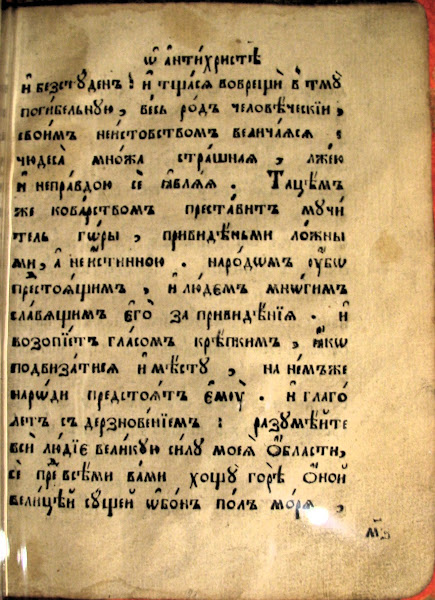 Ѡ҆ а҆нти́христѣ
и҆ безсту́денъ : и҆ тща́сѧ воврецѝ в тмꙋ̀
поги́бельную , ве́сь ро́дъ человѣ́ческїи ,
свои́мъ неи́стовствомъ велича́ѧсѧ :
чюдеса̀ мно́жа стра́шнаѧ , лже́ю
и҆ непра́вдою се̏ ꙗ҆влѧ́ѧ . Таце́мъ
же кова́рствомъ преста́витъ мучи́
тель го́ры , привидѣ́ньми ло́жны
ми , а҆ неи́стинною . наро́дѡмъ ᲂу҆́бѡ
престоѧ́щимъ , и҆ лю́демъ мнѡ́гимъ
сла́вѧщимъ є҆го̀ за привидѣ́нїѧ . и҆
возопїе́тъ гла́сомъ крѣ́пкимъ , ꙗ҆́кѡ
подвиза́тисѧ и҆ мѣ́сту , на не́мъже
наро́ди предстоѧ́тъ є҆мꙋ̀ . и҆ глаго́
летъ с дерзнове́нїемъ : разумѣ́йте
всѝ лю́дїе вели́кую си́лу моеѧ̀ ѻ҆́бласти ,
се̏ пре всѣ́ми ва́ми хощу̀ горѣ̀ ѻ҆́ной
вели́цѣй су́щей ѡ҆бо́нъ по́лъ мо́рѧ ,